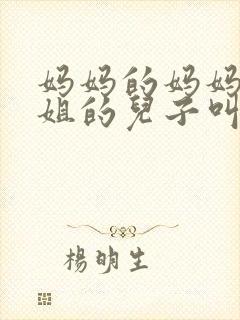 妈妈的妈妈
姐的兒子叫
楊明生